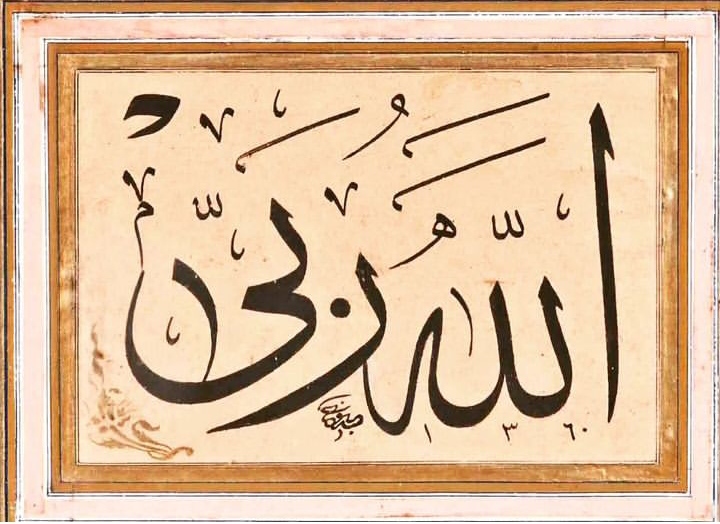 اللّٰهُ رَبِّي
١٣٦٠